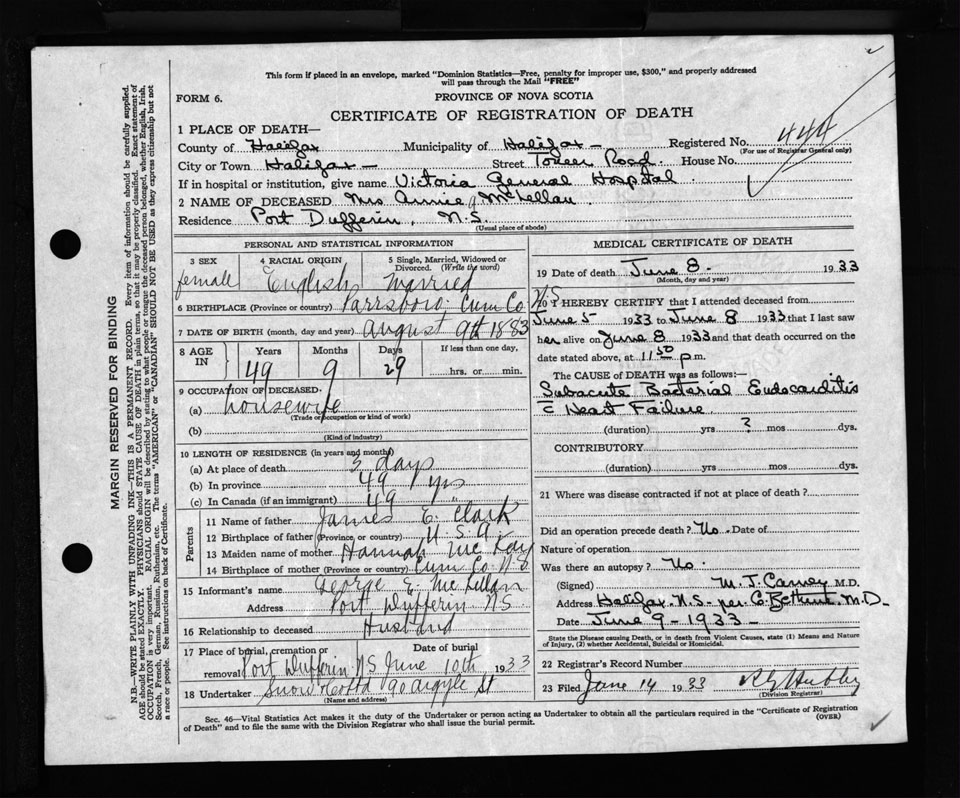 This form if placed in an envelope, marked "Dominion Statistics—Free, penalty for improper use, $300," and properly addressed
will pass through the Mail "FREE"
FORM 6.
PROVINCE OF NOVA SCOTIA
CERTIFICATE OF REGISTRATION OF DEATH
1 PLACE OF DEATH—
County of Halifax Municipality of Halifax — Registered No. 444
(For use of Registrar General only)
City or Town Halifax — Street Tower Road. House No.
If in hospital or institution, give name Victoria General Hospital.
2 NAME OF DECEASED Mrs Annie J McLellan.
Residence Port Dufferin, N.S.
(Usual place of abode)
PERSONAL AND STATISTICAL INFORMATION
3 SEX female
4 RACIAL ORIGIN English
5 Single, Married, Widowed or Divorced. (Write the word) Married
6 BIRTHPLACE (Province or country) Parrsboro, Cum Co NS
7 DATE OF BIRTH (month, day and year) August 9th 1883
8 AGE IN Years 49 Months 9 Days 29 If less than one day, hrs. or min.
9 OCCUPATION OF DECEASED
(a) housewife
(Trade or occupation or kind of work)
(b)
(Kind of industry)
10 LENGTH OF RESIDENCE (in years and months)
(a) At place of death 3 days
(b) In province 49 yrs
(c) In Canada (if an immigrant) 49 "
Parents
11 Name of father James E. Clark
12 Birthplace of father (Province or country) U.S.A.
13 Maiden name of mother Hannah McKay
14 Birthplace of mother (Province or country) Cum Co N.S
15 Informant's name George E. McLellan
Address Port Dufferin NS
16 Relationship to deceased Husband
17 Place of burial, cremation or removal Port Dufferin NS Date of burial June 10th 1933
18 Undertaker Snow & Co Ltd 90 Argyle St
(Name and address)
MEDICAL CERTIFICATE OF DEATH
19 Date of death June 8. 1933
(Month, day and year)
20 I HEREBY CERTIFY that I attended deceased from
June 5 1933 to June 8 1933 that I last saw
her alive on June 8 1933 and that death occurred on the
date stated above, at 11 50 p m.
The CAUSE OF DEATH was as follows:—
Subacute Bacterial Endocarditis
c Heart Failure
(duration) yrs ? mos dys.
CONTRIBUTORY
(duration) yrs mos dys.
21 Where was disease contracted if not at place of death?
Did an operation precede death? No. Date of
Nature of operation
Was there an autopsy? No.
(Signed) M. J. Carney M.D.
Address Halifax N.S. per C. Bethune, M.D.
Date June 9 - 1933 -
State the Disease causing Death, or in death from Violent Causes, state (1) Means and Nature
of Injury, (2) whether Accidental, Suicidal or Homicidal.
22 Registrar's Record Number
23 Filed June 14 1933
(Division Registrar)
Sec. 46—Vital Statistics Act makes it the duty of the Undertaker or person acting as Undertaker to obtain all the particulars required in the "Certificate of Registration
of Death" and to file the same with the Division Registrar who shall issue the burial permit.
(OVER)
MARGIN RESERVED FOR BINDING
N.B.—WRITE PLAINLY WITH UNFADING INK—THIS IS A PERMANENT RECORD. Every item of information should be carefully supplied.
AGE should be stated EXACTLY. PHYSICIANS should STATE CAUSE OF DEATH in plain terms, so that it may be properly classified. Exact statement of
OCCUPATION is very important. RACIAL ORIGIN will be described by stating to what people or tongue the deceased person belonged, whether English, Irish,
Scotch, French, German, Russian, Ruthenian, etc. The terms "AMERICAN" or "CANADIAN" SHOULD NOT BE USED as they express citizenship but not
a race or people. See instructions on back of Certificate.